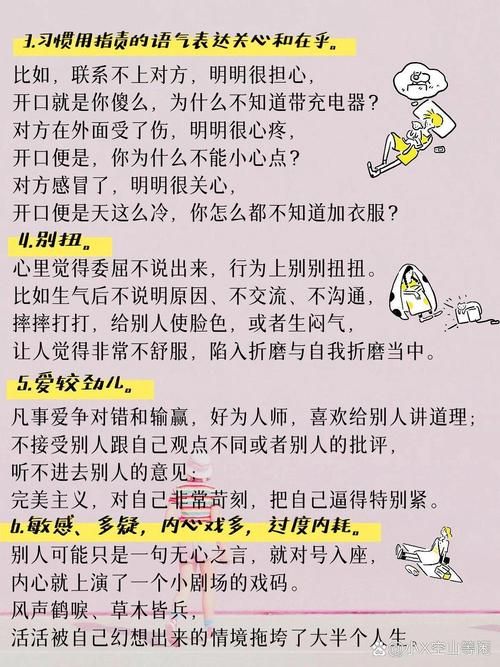 3.习惯用指责的语气表达关心和在乎。
比如，联系不上对方，明明很担心，
开口就是你傻么，为什么不知道带充电器？
对方在外面受了伤，明明很心疼，
开口便是，你为什么不能小心点？
对方感冒了，明明很关心，
开口便是天这么冷，你怎么都不知道加衣服？
4.别扭。
心里觉得委屈不说出来，行为上别别扭扭。
比如生气后不说明原因、不交流、不沟通，
摔摔打打，给别人使脸色，或者生闷气，
让人觉得非常不舒服，陷入折磨与自我折磨当中。
5.爱较劲儿。
凡事爱争对错和输赢，好为人师，喜欢给别人讲道理；
不接受别人跟自己观点不同或者别人的批评，
听不进去别人的意见；
完美主义，对自己非常苛刻，把自己逼得特别紧。
6.敏感、多疑，内心戏多，过度内耗。
别人可能只是一句无心之言，就对号入座，
内心就上演了一个小剧场的戏码。
风声鹤唳、草木皆兵，
活活被自己幻想出来的情境拖垮了大半个人生。